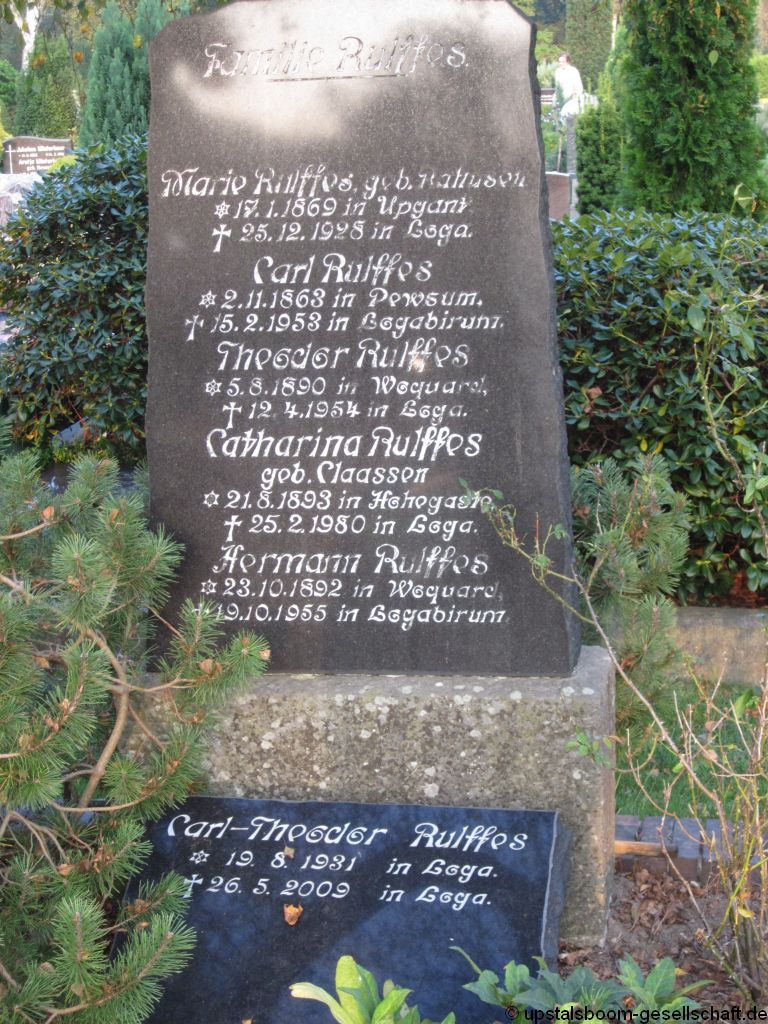 Familie Rulffes.
Marie Rulffes, geb. Nahusen
* 17.1.1869 in Upgant
† 25.12.1928 in Loga.
Carl Rulffes
* 2.11.1863 in Pewsum.
† 15.2.1953 in Logabirum.
Theodor Rulffes
* 5.8.1890 in Woquard,
† 12.4.1954 in Loga.
Catharina Rulffes
geb. Claassen
* 21.8.1893 in Hohegaste,
† 25.2.1980 in Loga.
Hermann Rulffes
* 23.10.1892 in Woquard,
† 19.10.1955 in Logabirum.
Carl-Theodor Rulffes
* 19.8.1931 in Loga.
† 26.5.2009 in Loga.
© upstalsboom-gesellschaft.de